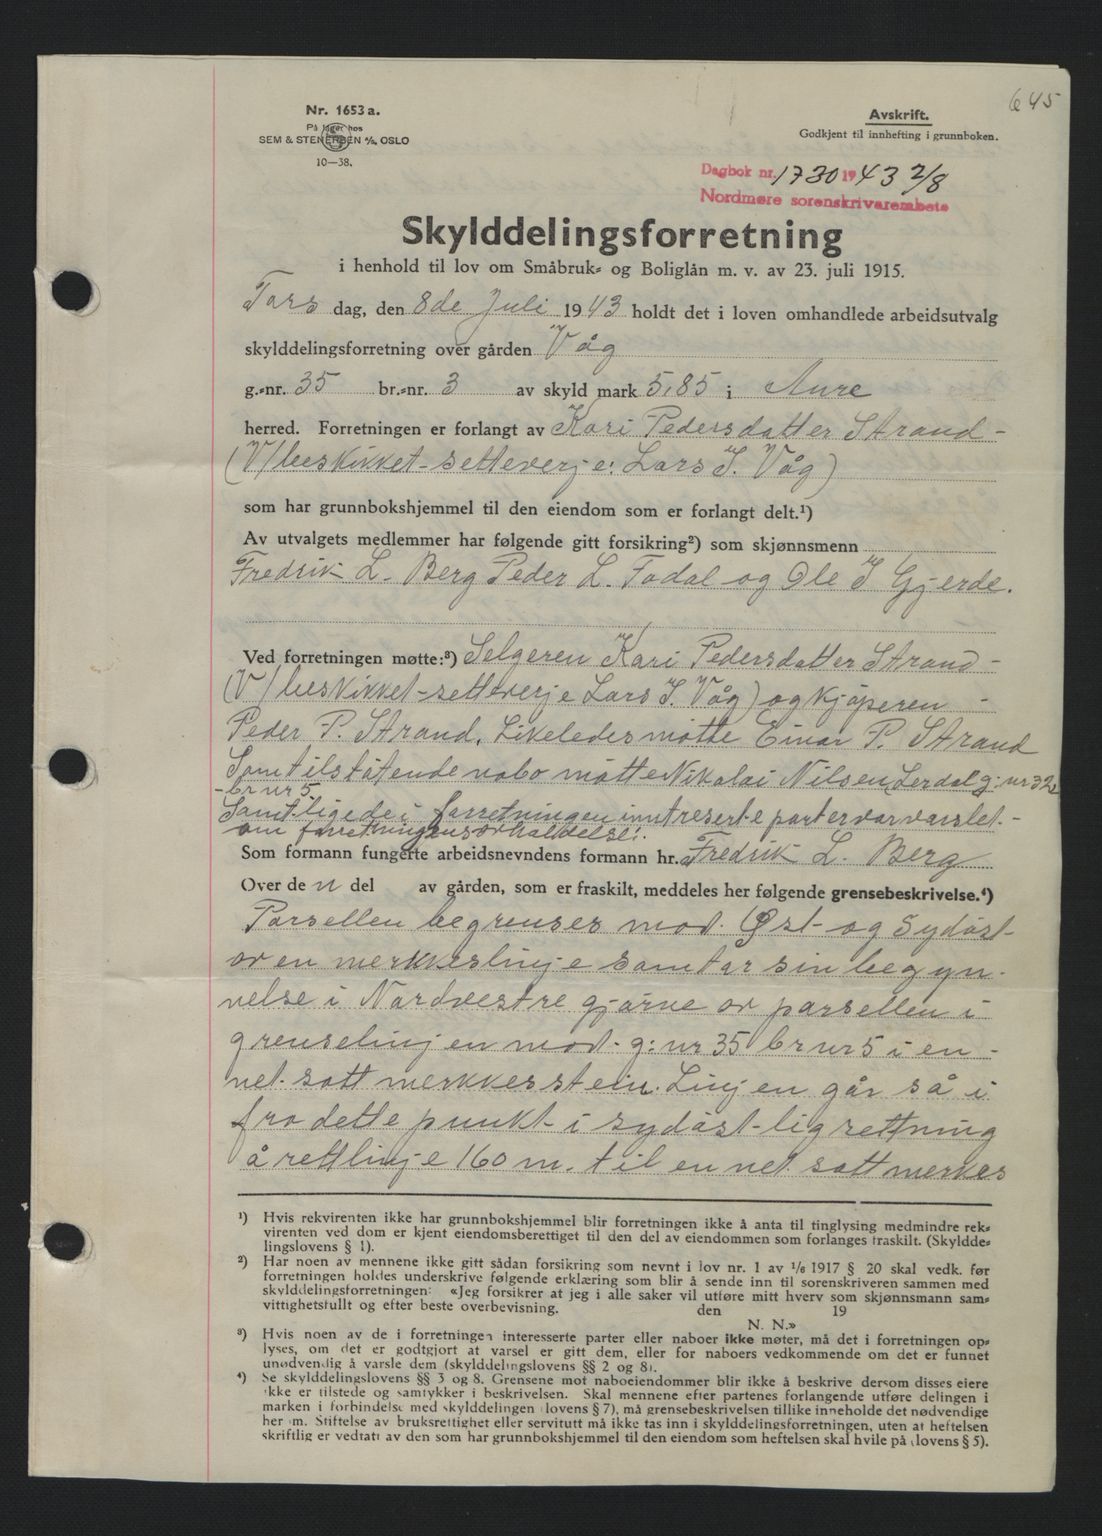 645
Nr. 1653 a.
På lager hos
SEM & STENERSEN A/S, OSLO
10—38.
Avskrift.
Godkjent til innhefting i grunnboken.
Dagbok nr. 1730 1943 2/8
Nordmøre sorenskrivarembete
Skylddelingsforretning
i henhold til lov om Småbruk- og Boliglån m. v. av 23. juli 1915.
Tors dag, den 8de Juli 1943 holdt det i loven omhandlede arbeidsutvalg
skylddelingsforretning over gården Våg
g.-nr. 35 br.-nr. 3 av skyld mark 5,85 i Aure
herred. Forretningen er forlangt av Kari Pedersdatter Strand-
(V/beskikket-setteverje: Lars J. Våg)
som har grunnbokshjemmel til den eiendom som er forlangt delt.¹)
Av utvalgets medlemmer har følgende gitt forsikring²) som skjønnsmenn
Fredrik L. Berg Peder L. Todal og Ole J Gjerde.
Ved forretningen møtte:³) Selgeren Kari Pedersdatter Strand-
(V/beskikket-setteverje Lars J. Våg) og Kjøperen -
Peder P. Strand. Likeledes møtte Einar P. Strand
Som tilstøtende nabo møtte Nikolai Nilsen Lerdal g: nr 32
- br nr 5
Samtlige de i forretningen inntreserte parter var varslet -
om forretningens avholdelse:
Som formann fungerte arbeidsnevndens formann hr. Fredrik L. Berg
Over de n del av gården, som er fraskilt, meddeles her følgende grensebeskrivelse.⁴)
Parsellen begrenses mod. Øst- og Sydøst-
av en merkkeslinje som tar sin begyn-
nelse i Nordvestre hjørne av parsellen i
grenselinjen mod- g: nr 35 br nr 5 i en -
net. satt merkkesstein. Linjen går så i
fra dette punkt i sydøst-lig rettning
å rettlinje 160 m. til en net satt merkes
¹) Hvis rekvirenten ikke har grunnbokshjemmel blir forretningen ikke å anta til tinglysing medmindre rek-
virenten ved dom er kjent eiendomsberettiget til den del av eiendommen som forlanges fraskilt. (Skyldde-
lingslovens § 1).
²) Har noen av mennene ikke gitt sådan forsikring som nevnt i lov nr. 1 av 1/6 1917 § 20 skal vedk. før
forretningen holdes underskrive følgende erklæring som blir å sende inn til sorenskriveren sammen med
skylddelingsforretningen: «Jeg forsikrer at jeg i alle saker vil utføre mitt hverv som skjønnsmann sam-
vittighetsfullt og efter beste overbevisning. den 19
N. N.»
³) Hvis noen av de i forretningen interesserte parter eller naboer ikke møter, må det i forretningen op-
lyses, om det er godtgjort at varsel er gitt dem, eller for naboers vedkommende om det er funnet
unødvendig å varsle dem (skylddelingslovens §§ 2 og 8).
⁴) Se skylddelingslovens §§ 3 og 8. Grensene mot naboeiendommer blir ikke å beskrive dersom disses eiere
ikke er tilstede og samtykker i beskrivelsen. Skal mennene efter partenes forlangende utføre delingen i
marken i forbindelse med skylddelingen (lovens § 7), må grensebeskrivelsen tillike inneholde det nødvendige
her om. Stiftelse av bruksrettighet eller servitutt må ikke tas inn i skylddelingsforretningen, uten at heftelsen
skriftlig er vedtatt av den som har grunnbokshjemmel til den eiendom som heftelsen skal hvile på (lovens § 5).